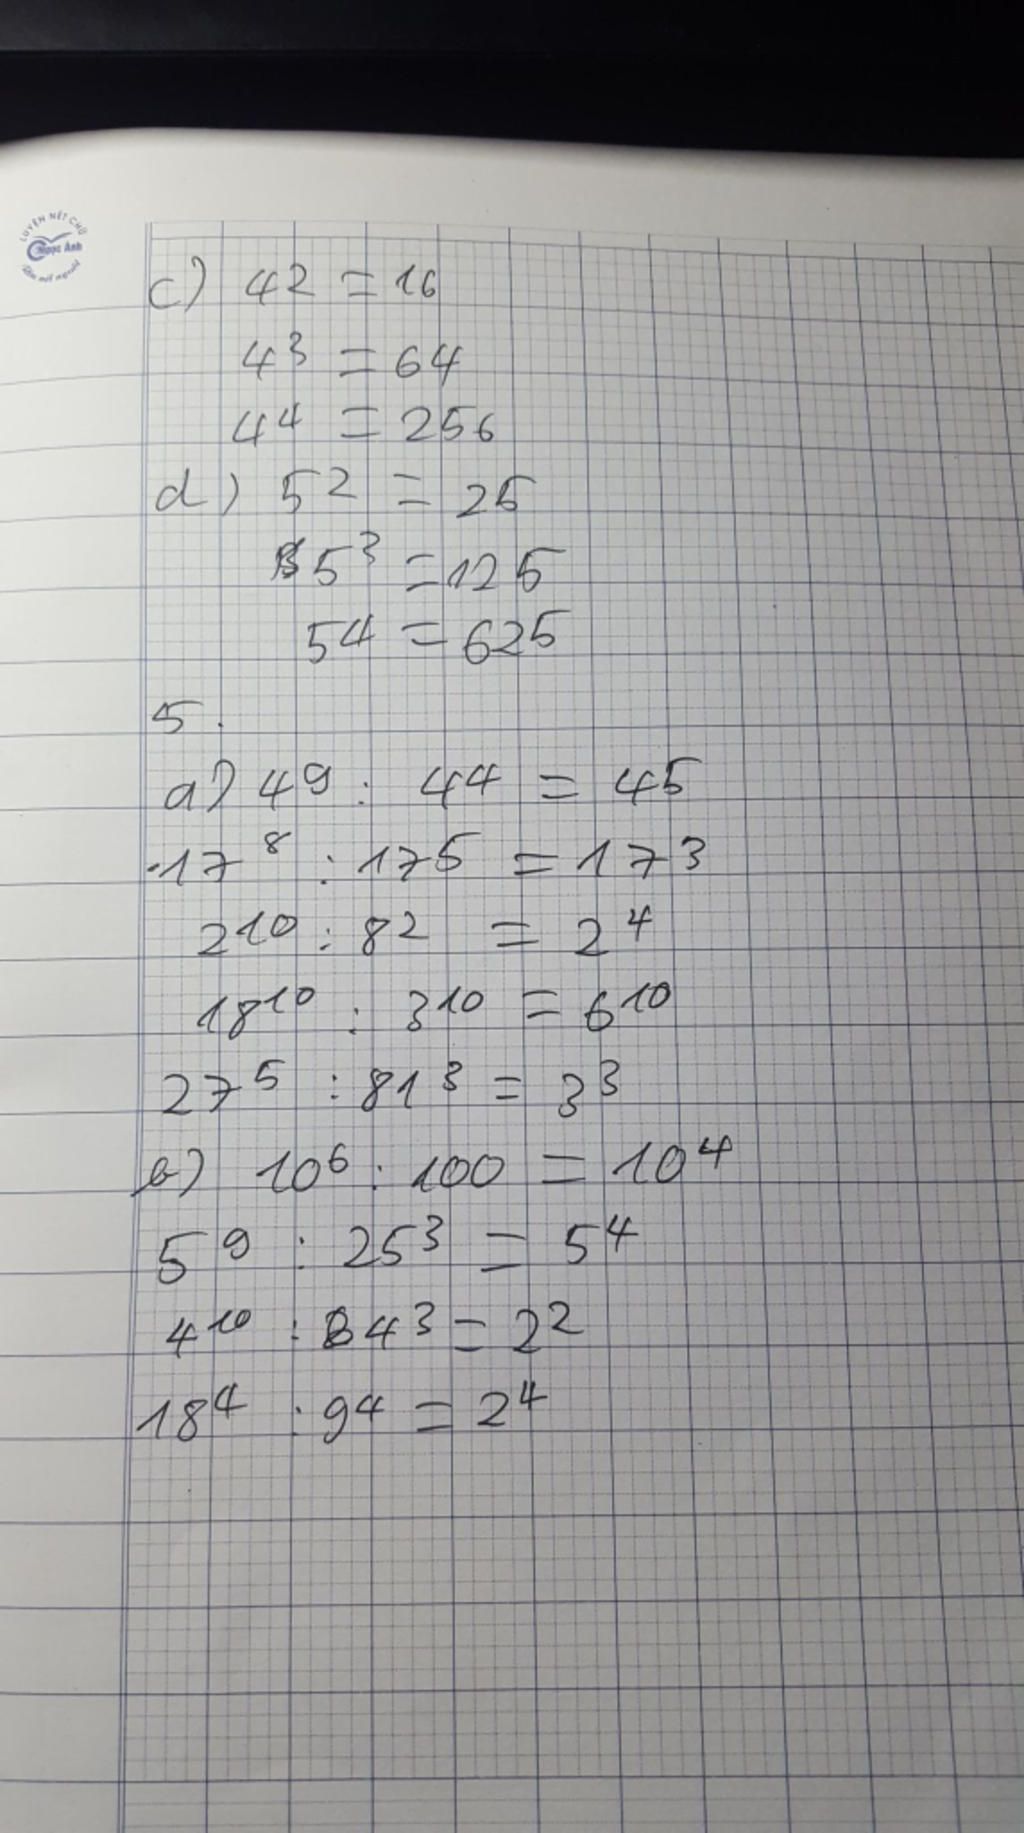 LUYỆN NÉT CHỮ
Ngọc Ánh
Rèn nết người
c) 4² = 16
4³ = 64
4⁴ = 256
d) 5² = 25
5³ = 125
5⁴ = 625
5.
a) 4⁹ : 4⁴ = 4⁵
17⁸ : 17⁵ = 17³
2¹⁰ : 8² = 2⁴
18¹⁰ : 3¹⁰ = 6¹⁰
27⁵ : 81³ = 3³
b) 10⁶ : 100 = 10⁴
5⁹ : 25³ = 5⁴
4¹⁰ : 64³ = 2²
18⁴ : 9⁴ = 2⁴